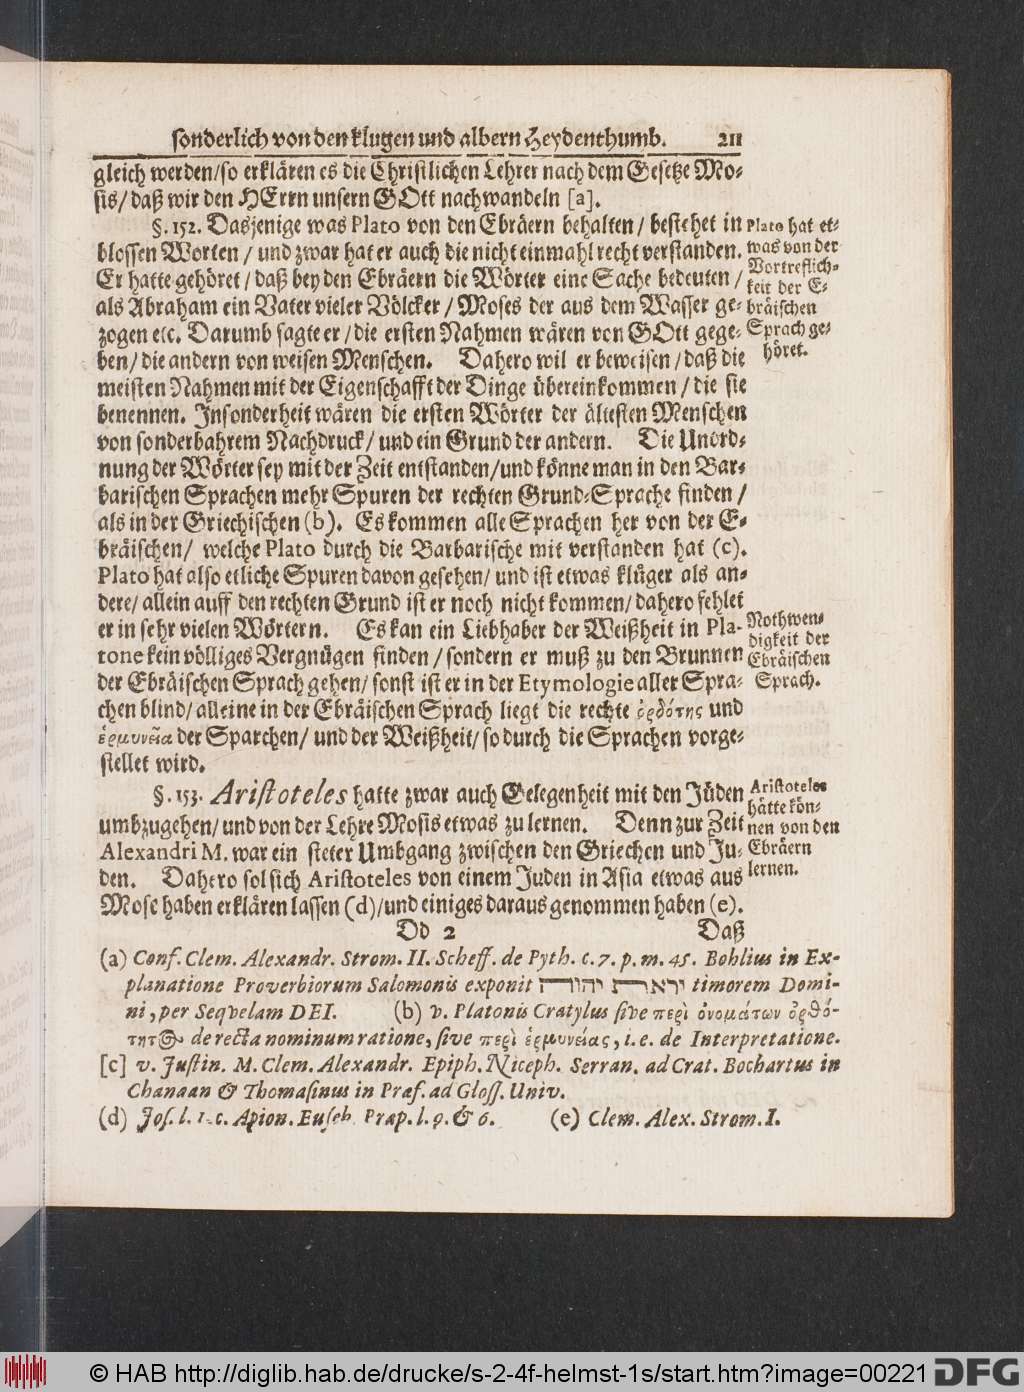 sonderlich von den klugen und albern Heydenthumb. 211
gleich werden/so erklären es die Christlichen Lehrer nach dem Gesetze Mo-
sis/ daß wir den HErrn unsern GOtt nachwandeln [a].
§. 152. Dasjenige was Plato von den Ebräern behalten/ bestehet in
blossen Worten / und zwar hat er auch die nicht einmahl recht verstanden.
Er hatte gehöret / daß bey den Ebräern die Wörter eine Sache bedeuten /
als Abraham ein Vater vieler Völcker / Moses der aus dem Wasser ge-
zogen etc. Darumb sagte er / die ersten Nahmen wären von GOtt gege-
ben/ die andern von weisen Menschen. Dahero wil er beweisen / daß die
meisten Nahmen mit der Eigenschafft der Dinge übereinkommen / die sie
benennen. Insonderheit wären die ersten Wörter der ältesten Menschen
von sonderbahrem Nachdruck/ und ein Grund der andern. Die Unord-
nung der Wörter sey mit der Zeit entstanden/und könne man in den Bar-
barischen Sprachen mehr Spuren der rechten Grund-Sprache finden /
als in der Griechischen (b). Es kommen alle Sprachen her von der E-
bräischen/ welche Plato durch die Barbarische mit verstanden hat (c).
Plato hat also etliche Spuren davon gesehen/ und ist etwas klüger als an-
dere/ allein auff den rechten Grund ist er noch nicht kommen/ dahero fehlet
er in sehr vielen Wörtern. Es kan ein Liebhaber der Weißheit in Pla-
tone kein völliges Vergnügen finden / sondern er muß zu den Brunnen
der Ebräischen Sprach gehen/ sonst ist er in der Etymologie aller Spra-
chen blind/ alleine in der Ebräischen Sprach liegt die rechte ὀρθότης und
ἑρμυνεῖα der Sparchen/ und der Weißheit/ so durch die Sprachen vorge-
stellet wird.
Plato hat et-
was von der
Vortreflich-
keit der E-
bräischen
Sprach ge-
höret.
Nothwen-
digkeit der
Ebräischen
Sprach.
§. 153. Aristoteles hatte zwar auch Gelegenheit mit den Jüden
umbzugehen/ und von der Lehre Mosis etwas zu lernen. Denn zur Zeit
Alexandri M. war ein steter Umbgang zwischen den Griechen und Ju-
den. Dahero sol sich Aristoteles von einem Juden in Asia etwas aus
Mose haben erklären lassen (d)/und einiges daraus genommen haben (e).
Aristoteles
hätte kön-
nen von den
Ebräern
lernen.
Dd 2 Daß
(a) Conf. Clem. Alexandr. Strom. II. Scheff. de Pyth. c. 7. p. m. 45. Bohlius in Ex-
planatione Proverbiorum Salomonis exponit יראת יהוה timorem Domi-
ni, per Seqvelam DEI. (b) v. Platonis Cratylus sive περὶ ὀνομάτων ὀρθό-
τητ@ de recta nominum ratione, sive περὶ ἑρμυνείας, i. e. de Interpretatione.
[c] v. Justin. M. Clem. Alexandr. Epiph. Niceph. Serran. ad Crat. Bochartus in
Chanaan & Thomasinus in Præf. ad Gloss. Univ.
(d) Jos. l. 1. c. Apion. Euseb. Præp. l. 9. & 6. (e) Clem. Alex. Strom. I.
© HAB http://diglib.hab.de/drucke/s-2-4f-helmst-1s/start.htm?image=00221 DFG